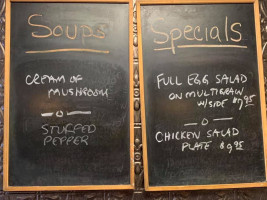 Soups
CREAM OF
MUSHROOM
STUFFED
PEPPER
Specials
FULL EGG SALAD
ON MULTIGRAIN
W/SIDE $7.95
CHICKEN SALAD
PLATE $9.95